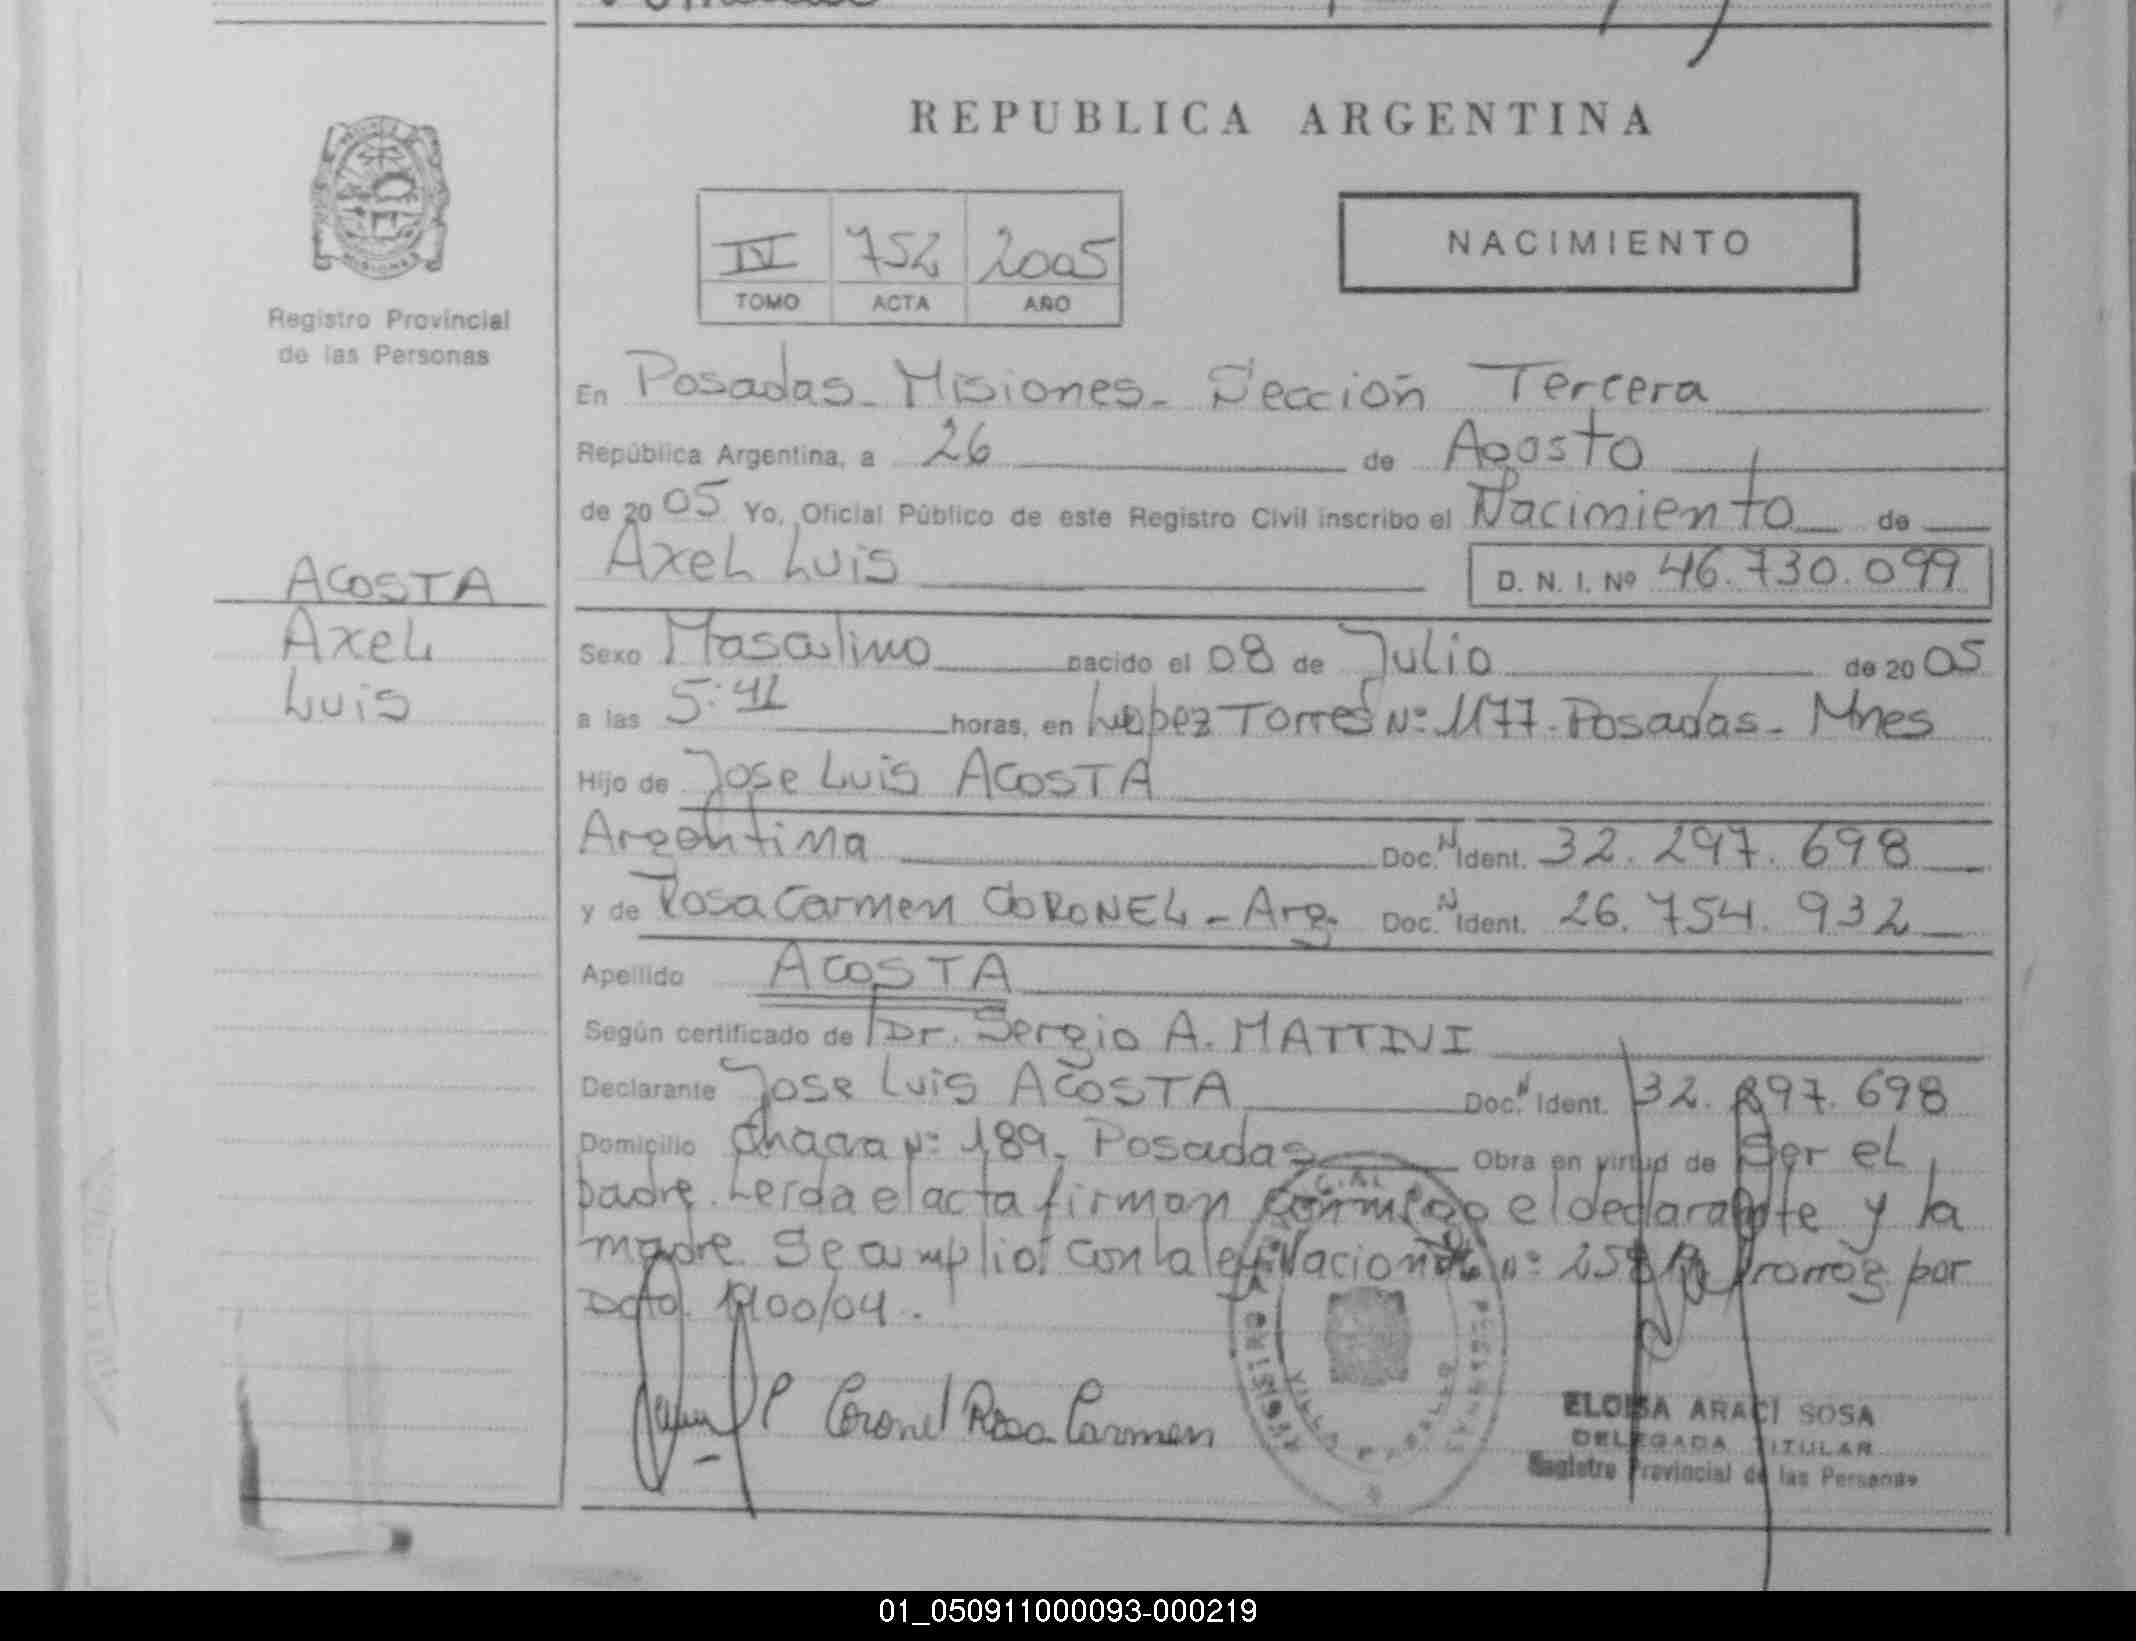 REPUBLICA ARGENTINA
IV 752 2005
TOMO ACTA AÑO
NACIMIENTO
Registro Provincial
de las Personas
En Posadas - Misiones - Sección Tercera
República Argentina, a 26 de Agosto
de 2005 Yo, Oficial Público de este Registro Civil inscribo el Nacimiento de
Axel Luis D. N. I. Nº 46.730.099
ACOSTA
Axel
Luis
Sexo Masculino nacido el 08 de Julio de 2005
a las 5:41 horas, en Lopez Torres Nº 1177 - Posadas - Mnes
Hijo de Jose Luis ACOSTA
Argentina Doc. N Ident. 32.297.698
y de Rosa Carmen CORONEL - Arg. Doc. N Ident. 26.754.932
Apellido ACOSTA
Según certificado de Dr. Sergio A. MATTIVI
Declarante Jose Luis ACOSTA Doc. N Ident. 32.297.698
Domicilio Chacra Nº 189. Posadas Obra en virtud de Ser el
padre. Leida el acta firman conmigo el declarante y la
madre. Se cumplió con la ley Nacional Nº por
Dcto. 1100/04.
Coronel Rosa Carmen
ELOISA ARACI SOSA
DELEGADA TITULAR
Registro Provincial de las Personas
01_050911000093-000219